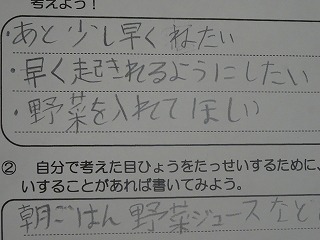 考えよう!
・あと少し早くねたい
・早く起きれるようにしたい
・野菜を入れてほしい
② 自分で考えた目ひょうをたっせいするために、
いすることがあれば書いてみよう。
朝ごはん野菜ジュースなど